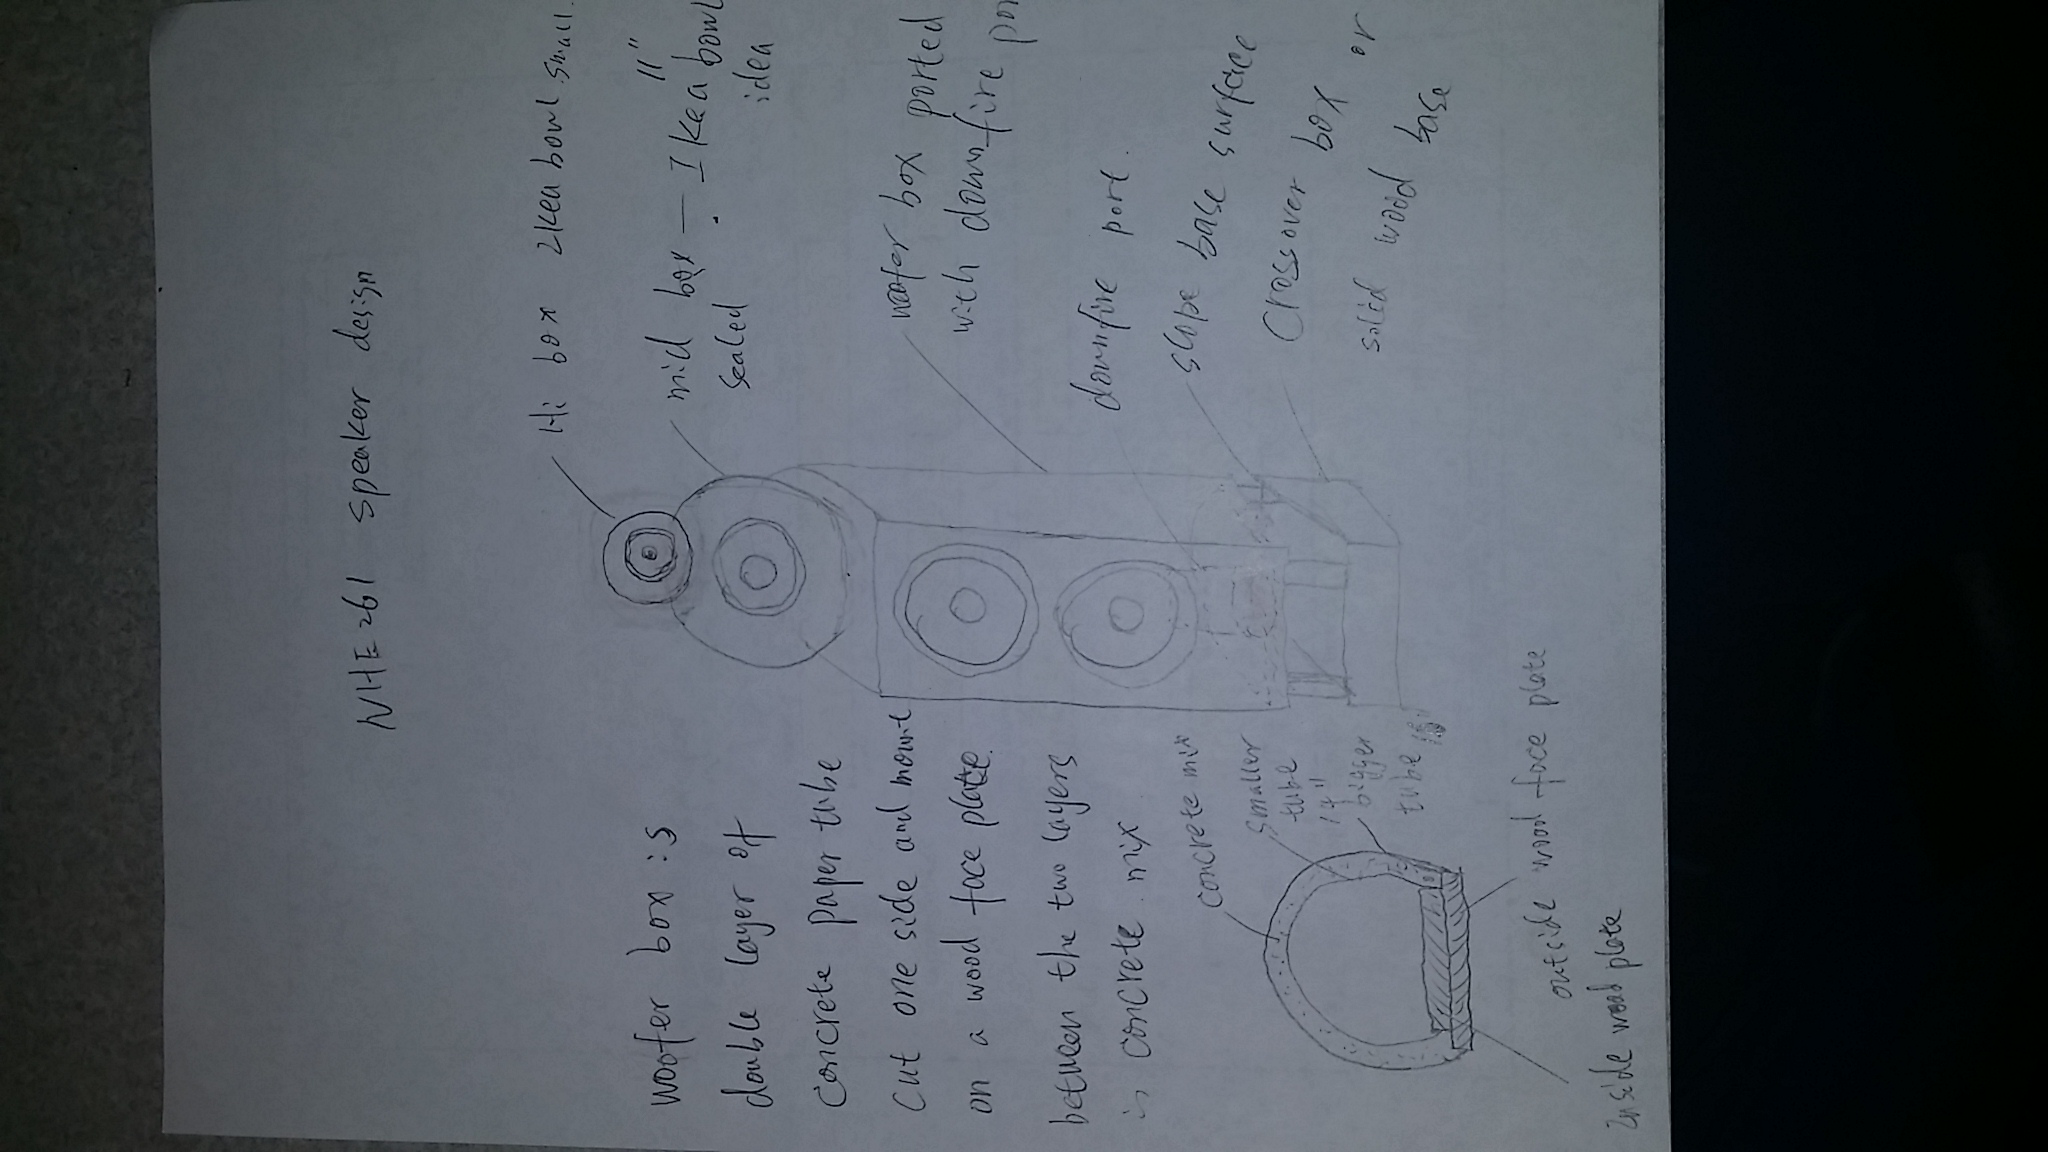 NHE261 speaker design
Hi box Ikea bowl small.
mid box - Ikea bowl
sealed
11"
idea
woofer box ported
with downfire por
downfire port.
slope base surface
Crossover box or
solid wood base
woofer box is
double layer of
concrete paper tube
cut one side and mount
on a wood face plate.
between the two layers
is concrete mix
concrete mix
smaller
tube
14"
bigger
tube
outside wood face plate
inside wood plate